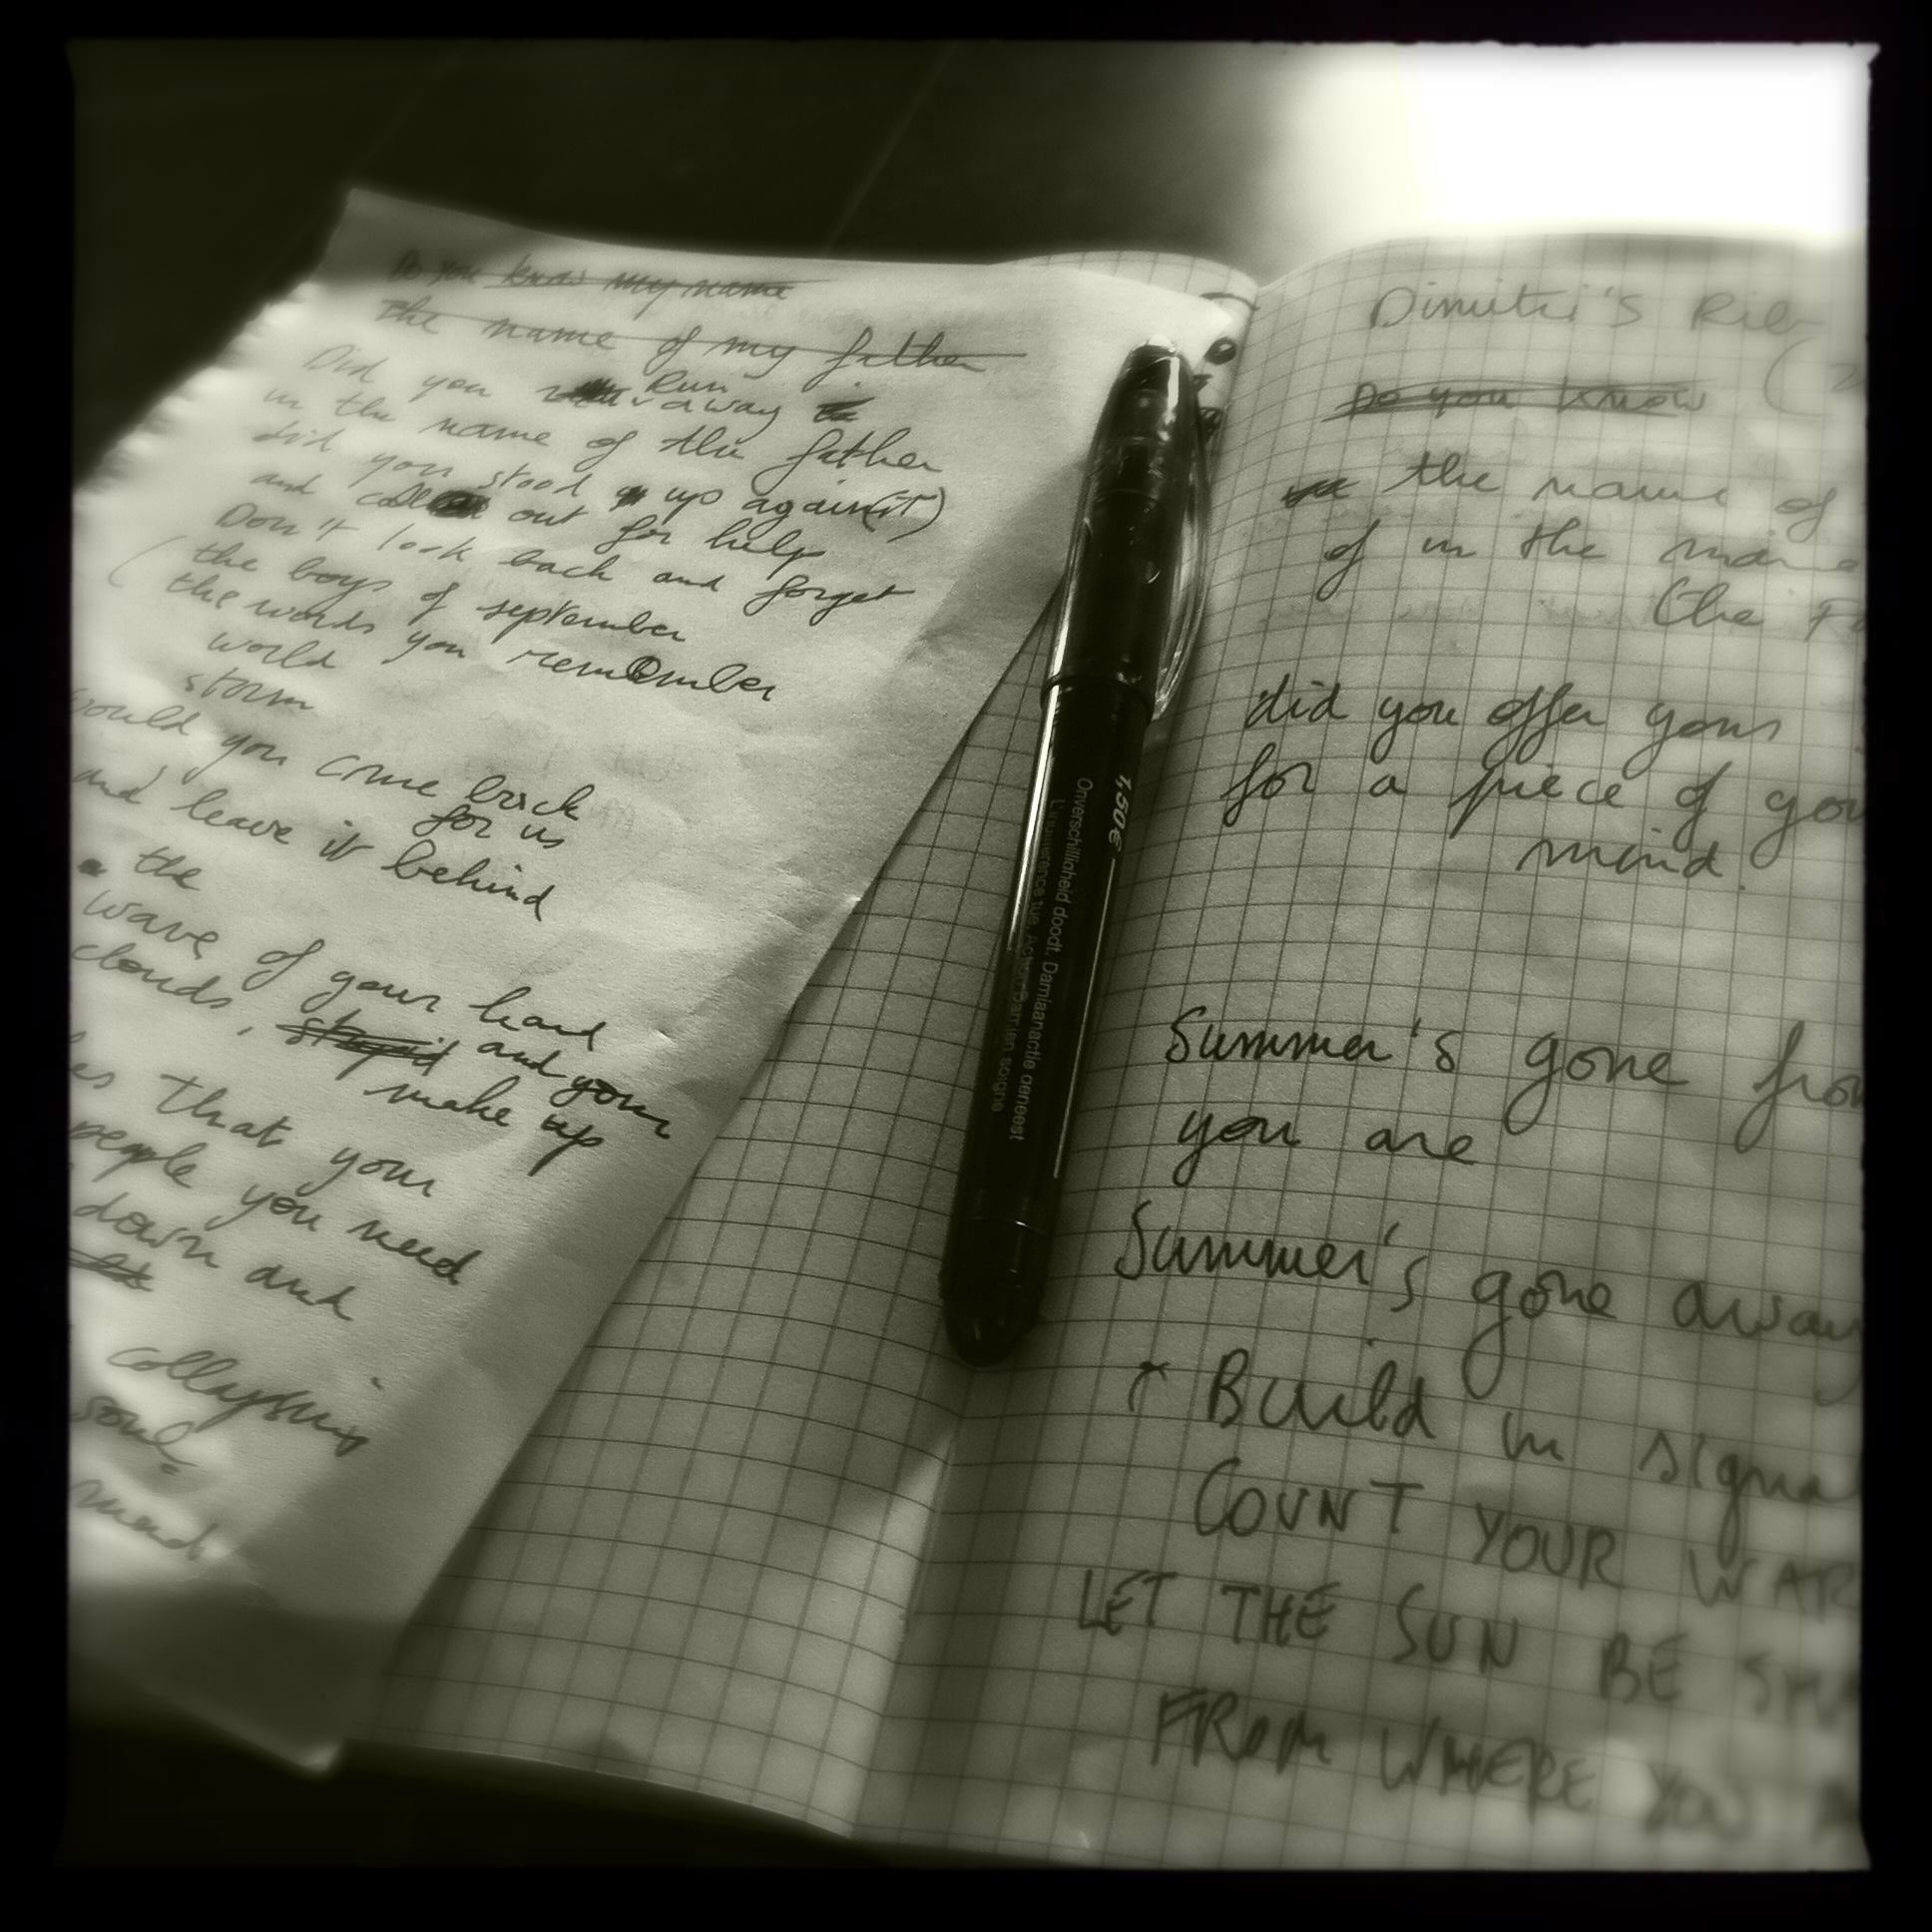 Do you know my name
the name of my father
Did you Run away
in the name of the father
did you stood up again(st)
and call out for help
Don't look back and forget
(the boys of september
the words you remember
world
storm
would you come back
for us
and leave it behind
the
wave of your hand
clouds, stupid and your
make up
that your
people you need
down and
collapsing
soul
minds
1,50€
Onverschilligheid doodt. Damiaanactie geneest
L'indifférence tue. Action Damien soigne
Dimitri's
Do you know
the name of
of in the name
(the
did you offer yours
for a piece of you
mind.
Summer's gone from
you are
Summer's gone away
Build in signa
COUNT YOUR WAR
LET THE SUN BE SHA
FROM WHERE YOU A